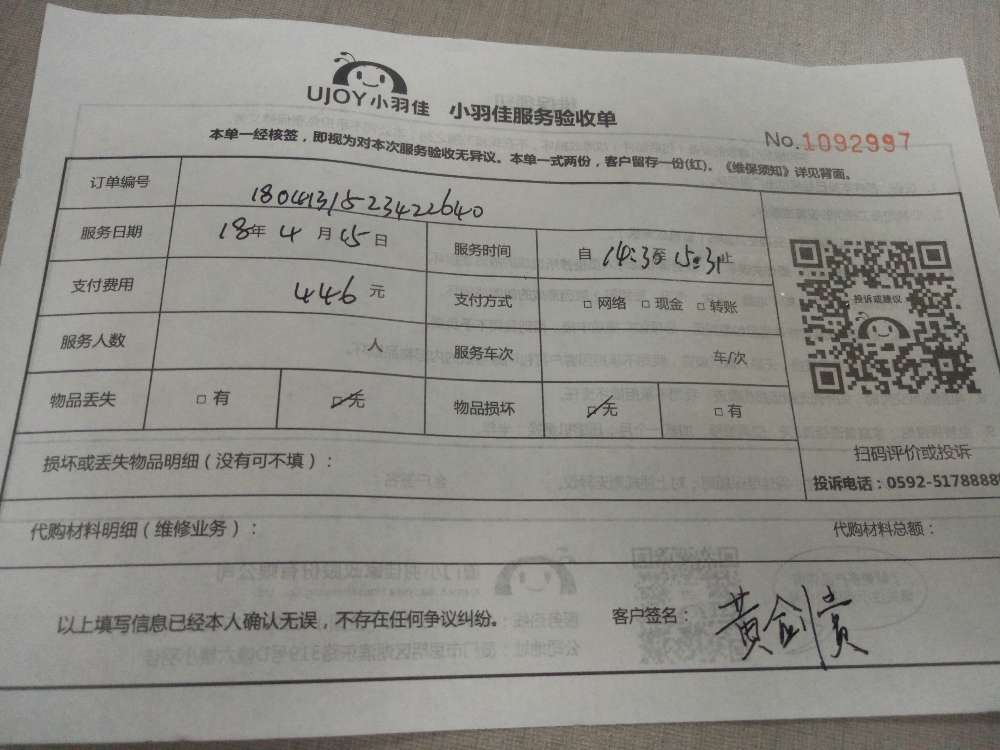 UJOY小羽佳 小羽佳服务验收单
No.1092997
本单一经核签，即视为对本次服务验收无异议。本单一式两份，客户留存一份(红)。《维保须知》详见背面。
订单编号 1804131523422640
服务日期 18年 4 月 15 日 服务时间 自 14:3至 15:31止
支付费用 446 元 支付方式 □ 网络 □ 现金 □ 转账
投诉或建议
服务人数 人 服务车次 车/次
物品丢失 □ 有 □ 无 物品损坏 □ 无 □ 有
损坏或丢失物品明细（没有可不填）：
扫码评价或投诉
投诉电话：0592-5178888
代购材料明细（维修业务）： 代购材料总额：
以上填写信息已经本人确认无误，不存在任何争议纠纷。 客户签名：黄剑贵